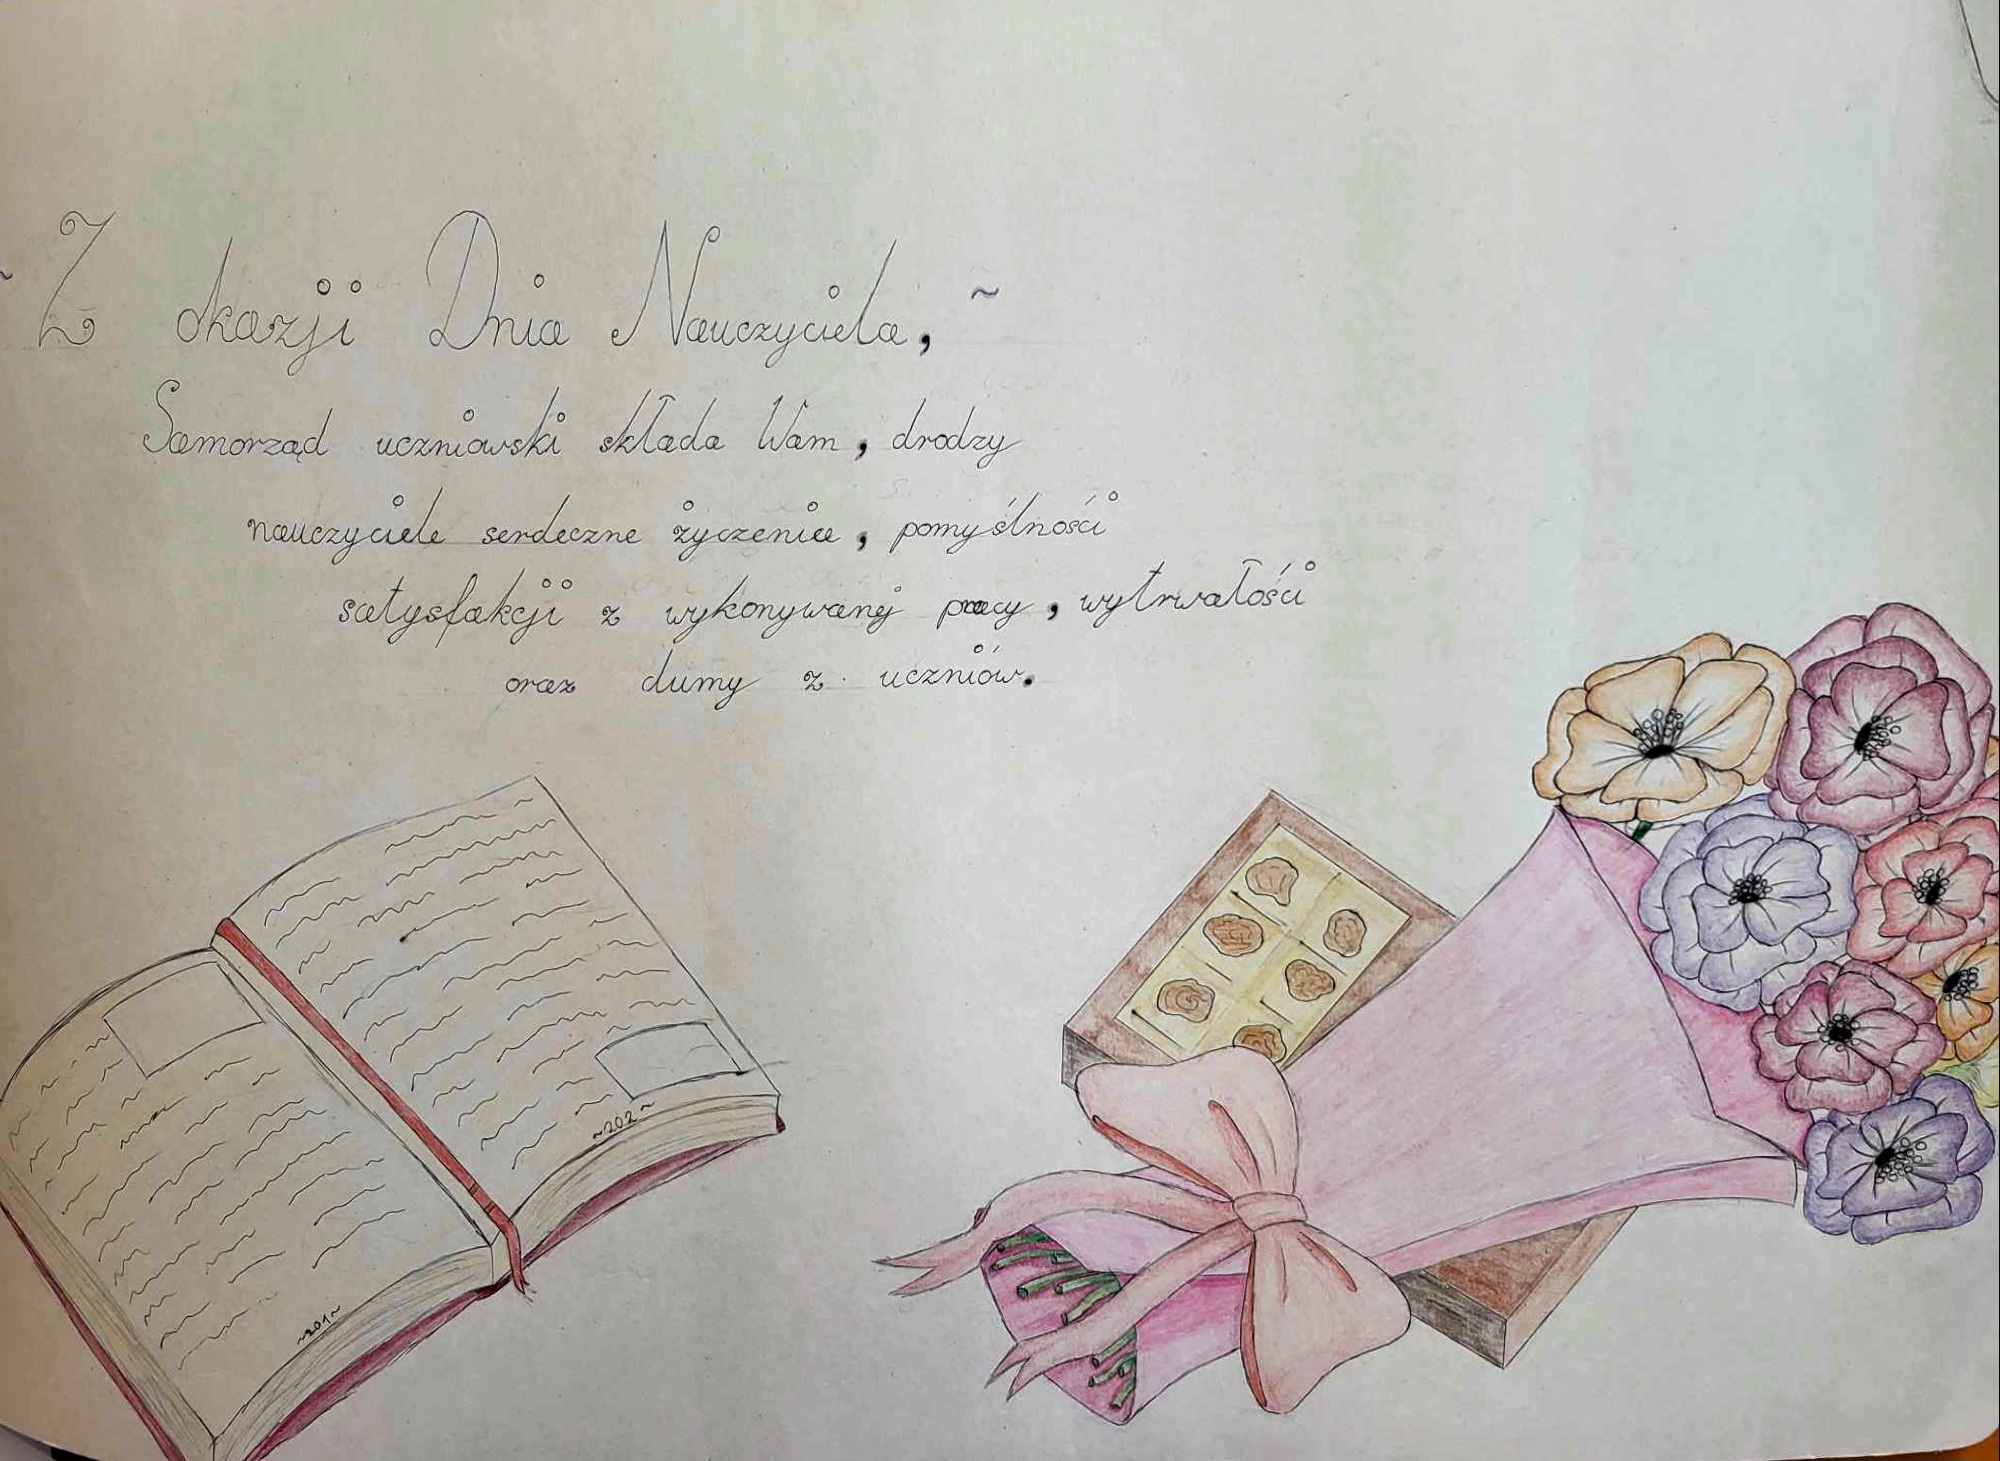 ~ Z okazji Dnia Nauczyciela, ~
Samorząd uczniowski składa Wam, drodzy
nauczyciele serdeczne życzenia, pomyślności
satysfakcji z wykonywanej pracy, wytrwałości
oraz dumy z uczniów.
~202~
~201~